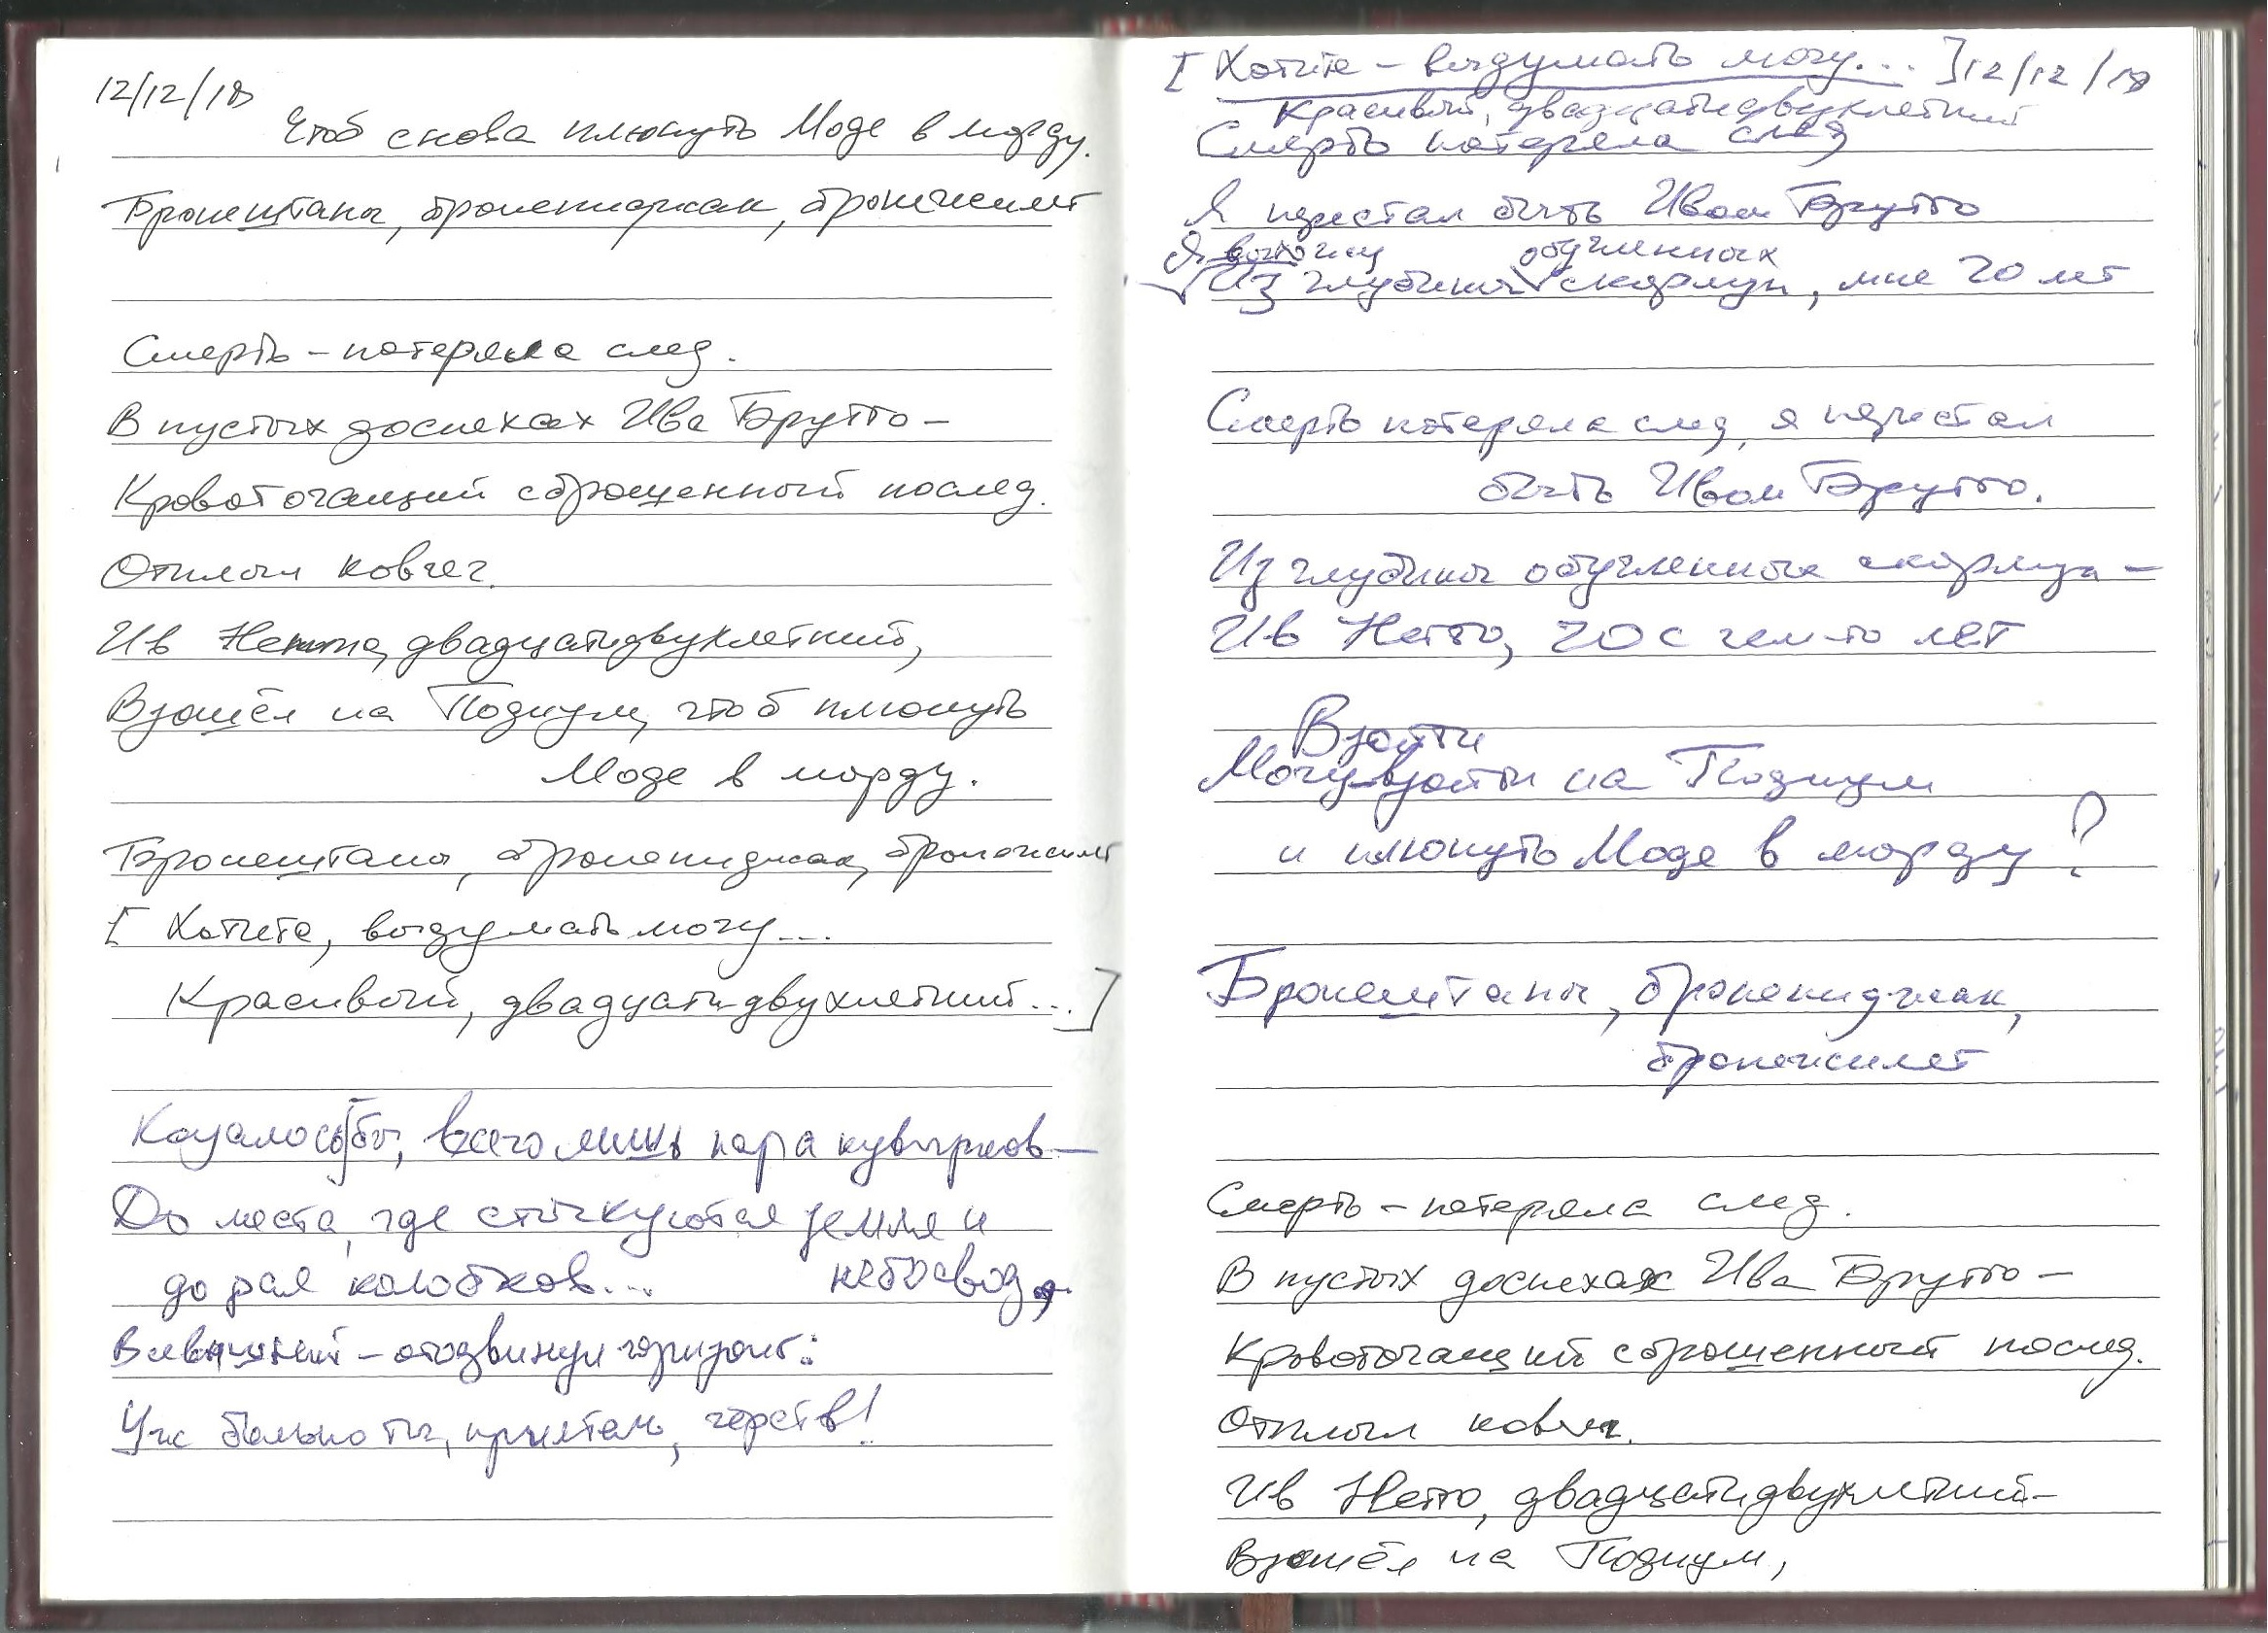 12/12/18
Чтоб снова плюнуть Моде в морду.
Бронештаны, бронепиджак, бронежилет
Смерть – потеряла след.
В пустых доспехах Ива Брутто –
Кровоточащий сброшенный послед.
Отплыл ковчег.
Ив Нетто, двадцатидвухлетний,
Взошёл на Подиум, чтоб плюнуть
Моде в морду.
Бронештаны, бронепиджак, бронежилет
[ Хотите, выдумать могу...
Красивый, двадцатидвухлетний...]
Казалось бы, всего лишь пара кувырков –
До места, где стыкуются земля и
небосвод,
до рая колобков...
Всевышний – отодвинул горизонт:
Уж больно ты, приятель, чёрств!
[ Хотите – выдумать могу... ] 12/12/18
Красивый, двадцатидвухлетний
Смерть потеряла след
Я перестал быть Ивом Брутто
Я выхожу обугленных
Из глубины скорлуп, мне 20 лет
Смерть потеряла след, я перестал
быть Ивом Брутто.
Из глубины обугленных скорлуп –
Ив Нетто, 20 с чем-то лет
Взойти
Могу взойти на Подиум
и плюнуть Моде в морду?
Бронештаны, бронепиджак,
бронежилет
Смерть – потеряла след.
В пустых доспехах Ива Брутто –
Кровоточащий сброшенный послед.
Отплыл ковчег.
Ив Нетто, двадцатидвухлетний –
Взошёл на Подиум,